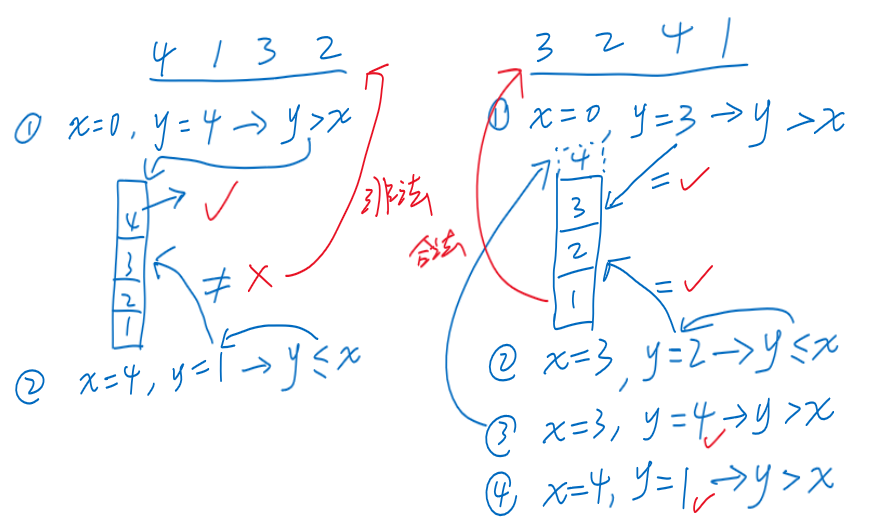 4 1 3 2
① x=0, y=4→y>x
4
3
2
1
≠ ×
非法
② x=4, y=1→y≤x
3 2 4 1
① x=0, y=3→y>x
4
3
2
1
= ✓
= ✓
合法
② x=3, y=2→y≤x
③ x=3, y=4→y>x
④ x=4, y=1→y>x